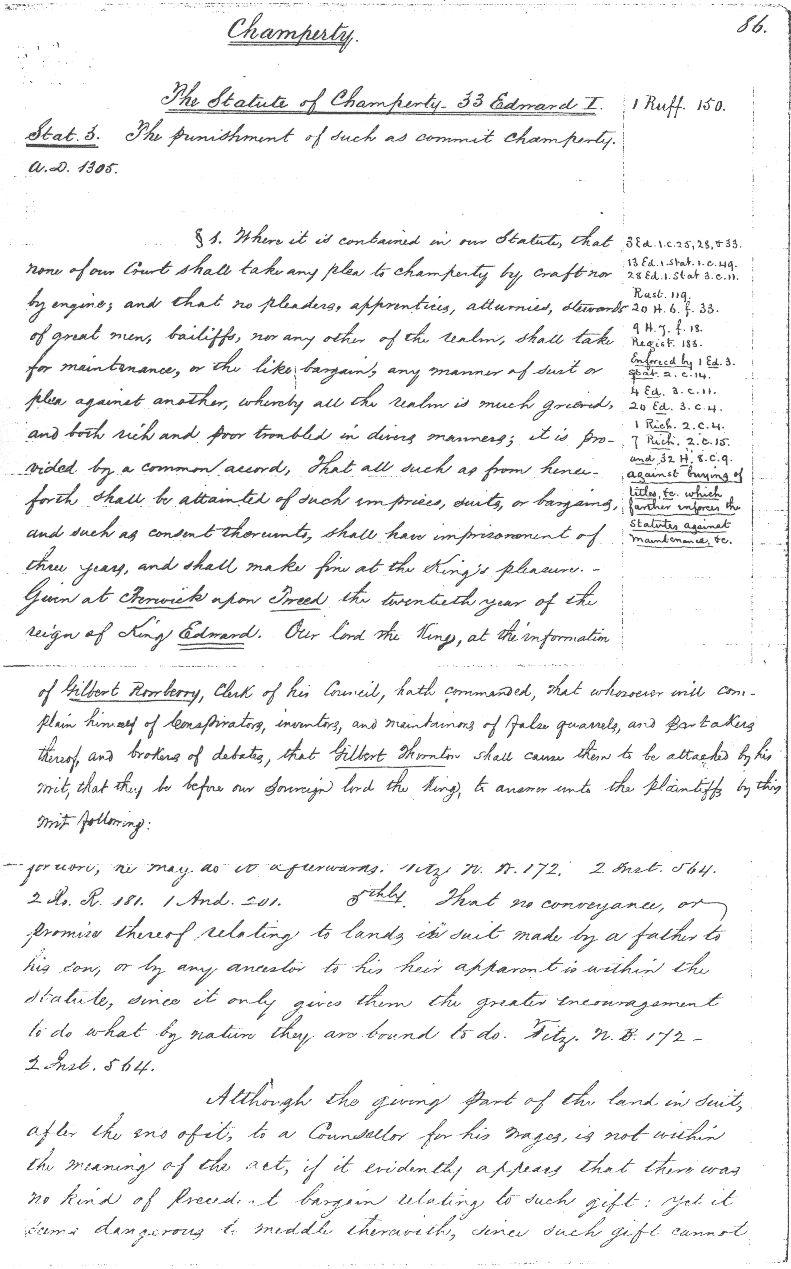 86.
Champerty.
The Statute of Champerty - 33 Edward I.
Stat. 3. The punishment of such as commit champerty.
A.D. 1305.
1 Ruff. 150.
§ 1. Where it is contained in our Statute, that
none of our Court shall take any plea to champerty by craft nor
by engine; and that no pleaders, apprentices, atturnies, stewards
of great men, bailiffs, nor any other of the realm, shall take
for maintenance, or the like bargain, any manner of suit or
plea against another, whereby all the realm is much grieved,
and both rich and poor troubled in divers manners; it is pro-
vided by a common accord, That all such as from hence-
forth shall be attainted of such emprices, suits, or bargains,
and such as consent thereunto, shall have imprisonment of
three years, and shall make fine at the King's pleasure. -
Given at Berwick upon Tweed the twentieth year of the
reign of King Edward. Our lord the King, at the information
3 Ed. 1. c. 25, 28, & 33.
13 Ed. 1. Stat. 1. c. 49.
28 Ed. 1. Stat 3. c. 11.
Rast. 119.
20 H. 6. f. 33.
9 H. 7. f. 18.
Regist. 183.
Enforced by 1 Ed. 3.
Stat. 2. c. 14.
4 Ed. 3. c. 11.
20 Ed. 3. c. 4.
1 Rich. 2. c. 4.
7 Rich. 2. c. 15.
and 32 H. 8. c. 9.
against buying of
titles, &c. which
farther enforces the
Statutes against
maintenance, &c.
of Gilbert Rowberry, Clerk of his Council, hath commanded, that whosoever will com-
plain himself of Conspirators, inventors, and maintainors of false quarrels, and partakers
thereof, and brokers of debates, that Gilbert Thornton shall cause them to be attached by his
writ, that they be before our Sovereign lord the King, to answer unto the plaintiffs by this
writ following:
he may do it afterwards. Fitz. N. B. 172. 2 Inst. 564.
2 Ro. R. 181. 1 And. 201. 5thly. That no conveyance, or
promise thereof relating to lands in suit made by a father to
his son, or by any ancestor to his heir apparent is within the
statute, since it only gives them the greater encouragement
to do what by nature they are bound to do. Fitz. N. B. 172 -
2 Inst. 564.
Although the giving part of the land in suit,
after the end of it, to a Counsellor for his wages, is not within
the meaning of the act, if it evidently appears that there was
no kind of precedent bargain relating to such gift: yet it
seems dangerous to meddle therewith, since such gift cannot